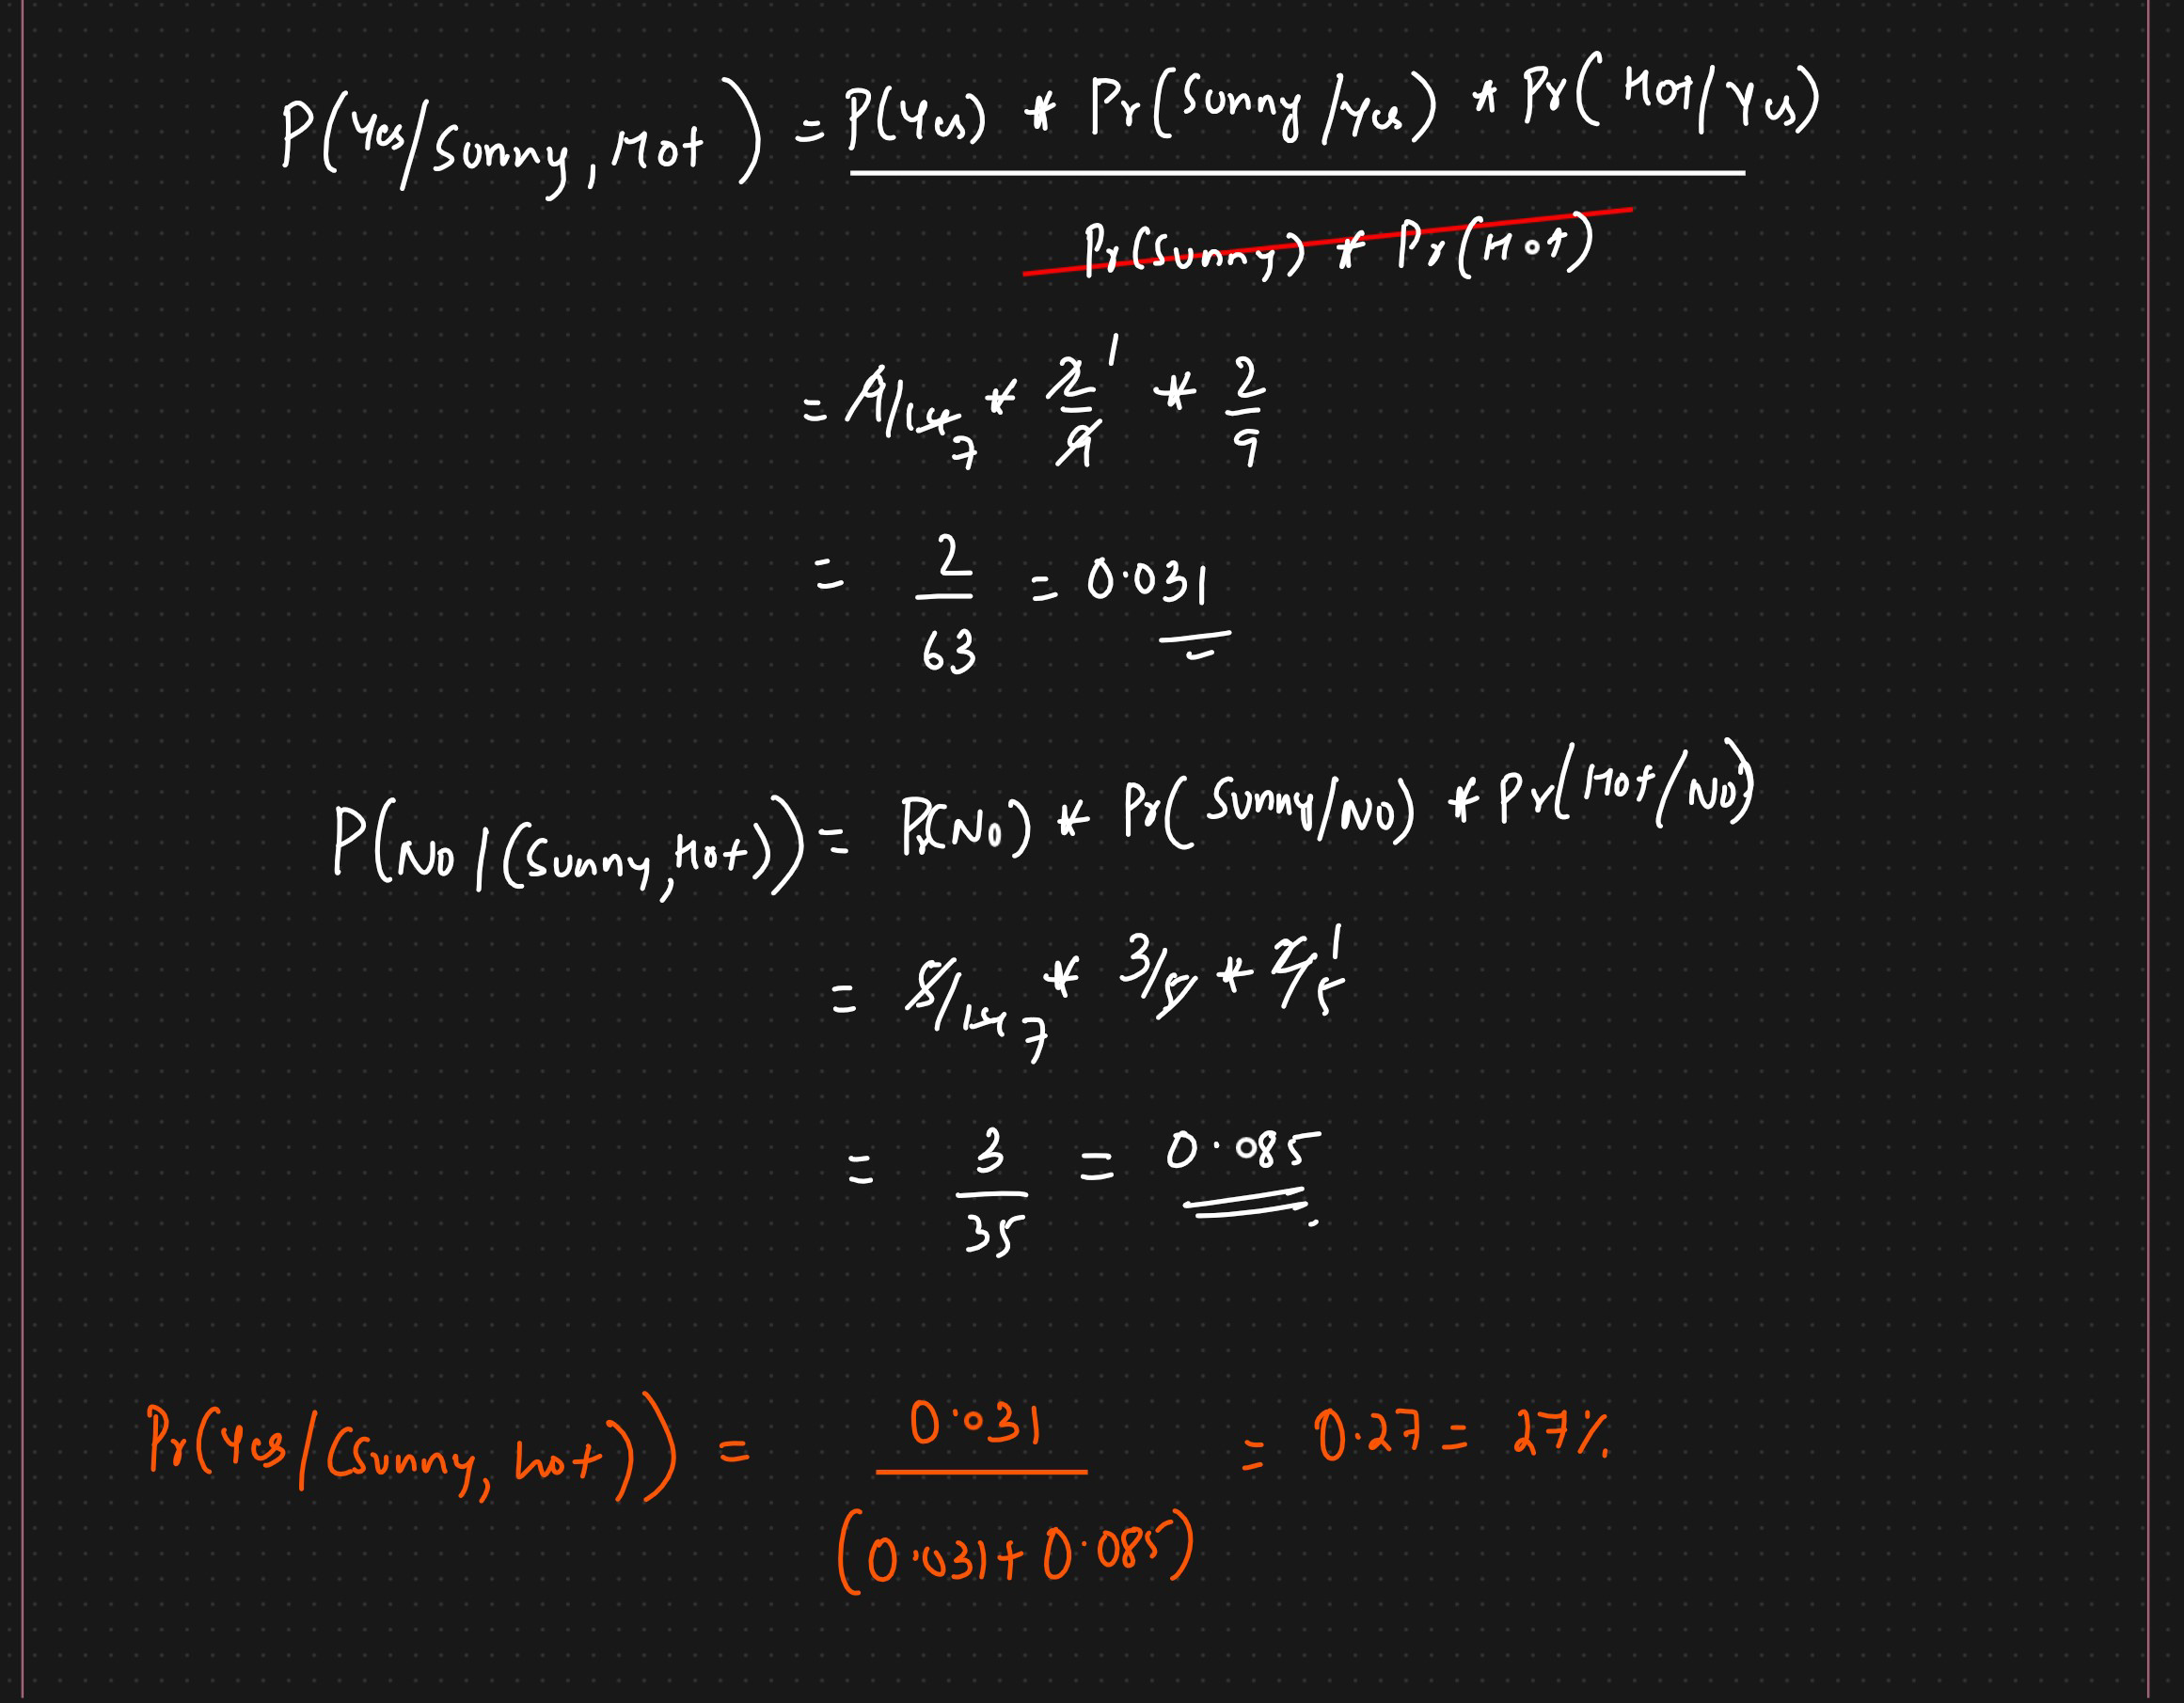 P(Yes/Sunny, Hot) = P(Yes) * Pr(Sunny/Yes) * Pr(Hot/Yes)
Pr(Sunny) * Pr(Hot)
= 9/14 7 * 2 1/9 * 2/9
= 2/63 = 0.031
P(No/(Sunny, Hot)) = Pr(No) * Pr(Sunny/No) * Pr(Hot/No)
= 5/14 7 * 3/5 * 2/5 1
= 3/35 = 0.085
Pr(Yes/(Sunny, hot)) = 0.031/(0.031+0.085) = 0.27 = 27%